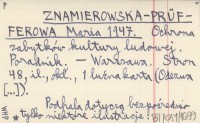 ZNAMIEROWSKA-PRÜF-
FEROWA Maria 1947. Ochrona
zabytków kultury ludowej.
Poradnik. — Warszawa. Stron
48, il., okł., 1 luźna karta (Odezwa
[...]).
Podhala dotyczą bezpośrednio
tylko niektóre ilustracje.